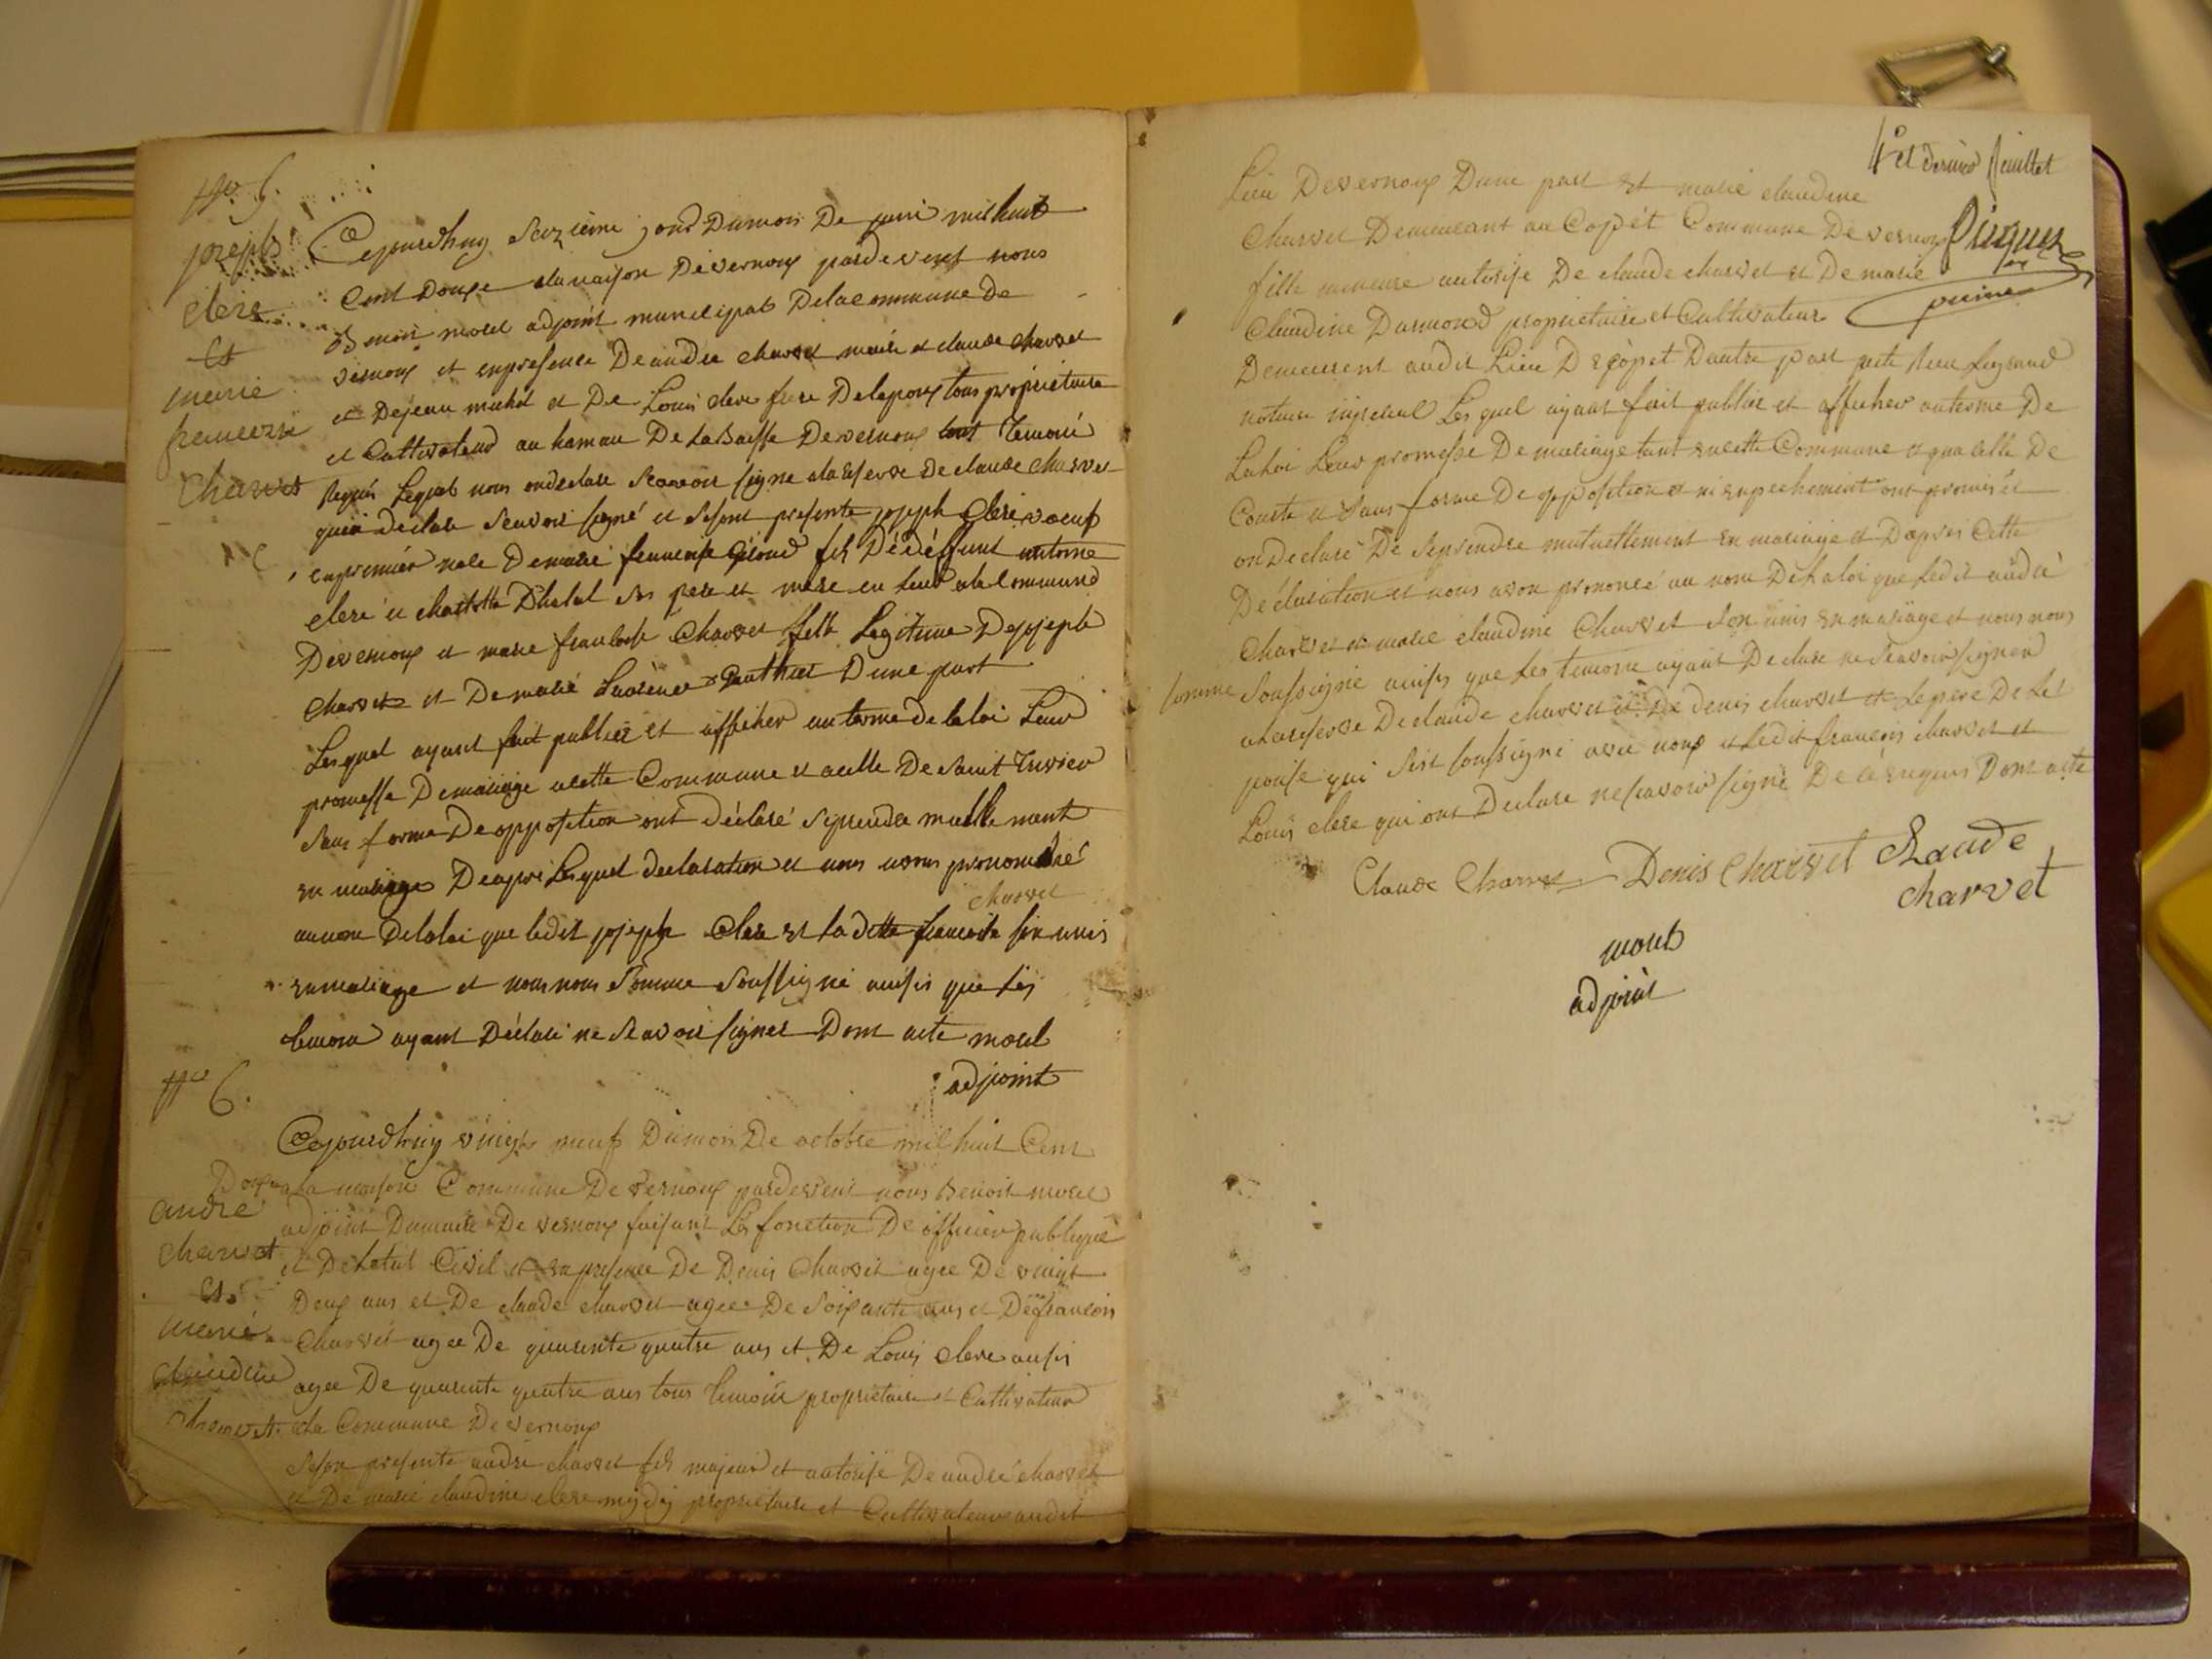 No 5.
joseph
Clere
Et
marie
francoise
Charvet
Cejourdhuy seizieme jour Dumois De juin mil huit
Cent Douze alamaison Devernoux pardevent nous
Benoit morel adjoint municipal Delacommune de
vernoux et enpresence De andre charvet maire et claude charvet
et Dejean michel et De Louis clere frere Delepoux tous proprietaire
et Cultivateur au hamau De la Basse Devernoux tout temoin
requis Lequel nous ondeclare scavoir signe alareserve de claude charvet
quia declare scavoir signé et sesont presente joseph Clere voeuf
enpremier nole Demarie francoise Giroud fils Dédéffunt antoine
clere et charlotte Dhalal ses pere et mere en leur ala Commune
Devernoux et marie francoise Charvet fille Legitime Dejoseph
Charvet et Demarie Laurence Gauthier D'une part
Lesquel ayant fait publier et afficher au terme de la loi Leur
promesse Demariage acette Commune et acelle De saint Trivier
sans forme De opposition ont déclaré seprendre mutuellement
en mariage Deapres Lesquel declaration et nous avons prononcé
charvet
aunom Delaloi que ledit joseph Clere et la ditte francoise son unis
enmariage et nous nous somme soussigné ausis que Les
temoin ayant Déclaré ne scavoir signer Dont acte morel
adjoint
No 6.
andré
Charvet
Et
marie
claudine
charvet
Cejourdhuy vingt neuf Dumois De octobre mil huit Cent
Douze ala maison Commune De vernoux pardevent nous Benoit morel
adjoint Dumaire De vernoux faisant Les fonction De officier publique
et Deletat Civil et en presence De Denis Charvet agee De vingt
Deux ans et De claude charvet agee De soixante ans et De francois
Charvet agee De quarente quatre ans et De Louis clere ausis
agee De quarente quatre ans tous temoin proprietaire et Cultivateur
ala Commune De vernoux
seson presente andré charvet fils majeur et autorise De andré charvet
et De marie claudine clere proprietaire et Cultivateur audit
4e et dernier feuillet
Lieu Devernoux Dune part et marie claudine
Charvet Demeurant au Copét Commune De vernoux
fille mineure autorise De claude charvet et De marie
Claudine Darmond proprietaire et Cultivateur
Demeurent audit Lieu Decopet Dautre part
notaire Lesquel ayant fait publier et afficher auterme De
La loi Leur promesse De mariage tant encette Commune et qua celle De
Courte et sans forme De opposition et ni enpechement ont promis et
onDeclaré De seprendre mutuellement en mariage et D'apres Cette
Declaration et nous avon prononcé au nom De la loi que Ledit andré
Charvet et marie claudine Charvet son unis en mariage et nous nous
somme soussigné ausis que Les temoin ayant Declare ne scavoir signer
alareserve De claude charvet et De denis charvet et Le pere De Le
pouse qui sest soussigné avec nous et Ledit francois charvet et
Louis clere qui ont Declare ne scavoir signé De ce requis Dont acte
Claude Charvet Denis Charvet Claude
charvet
morel
adjoint